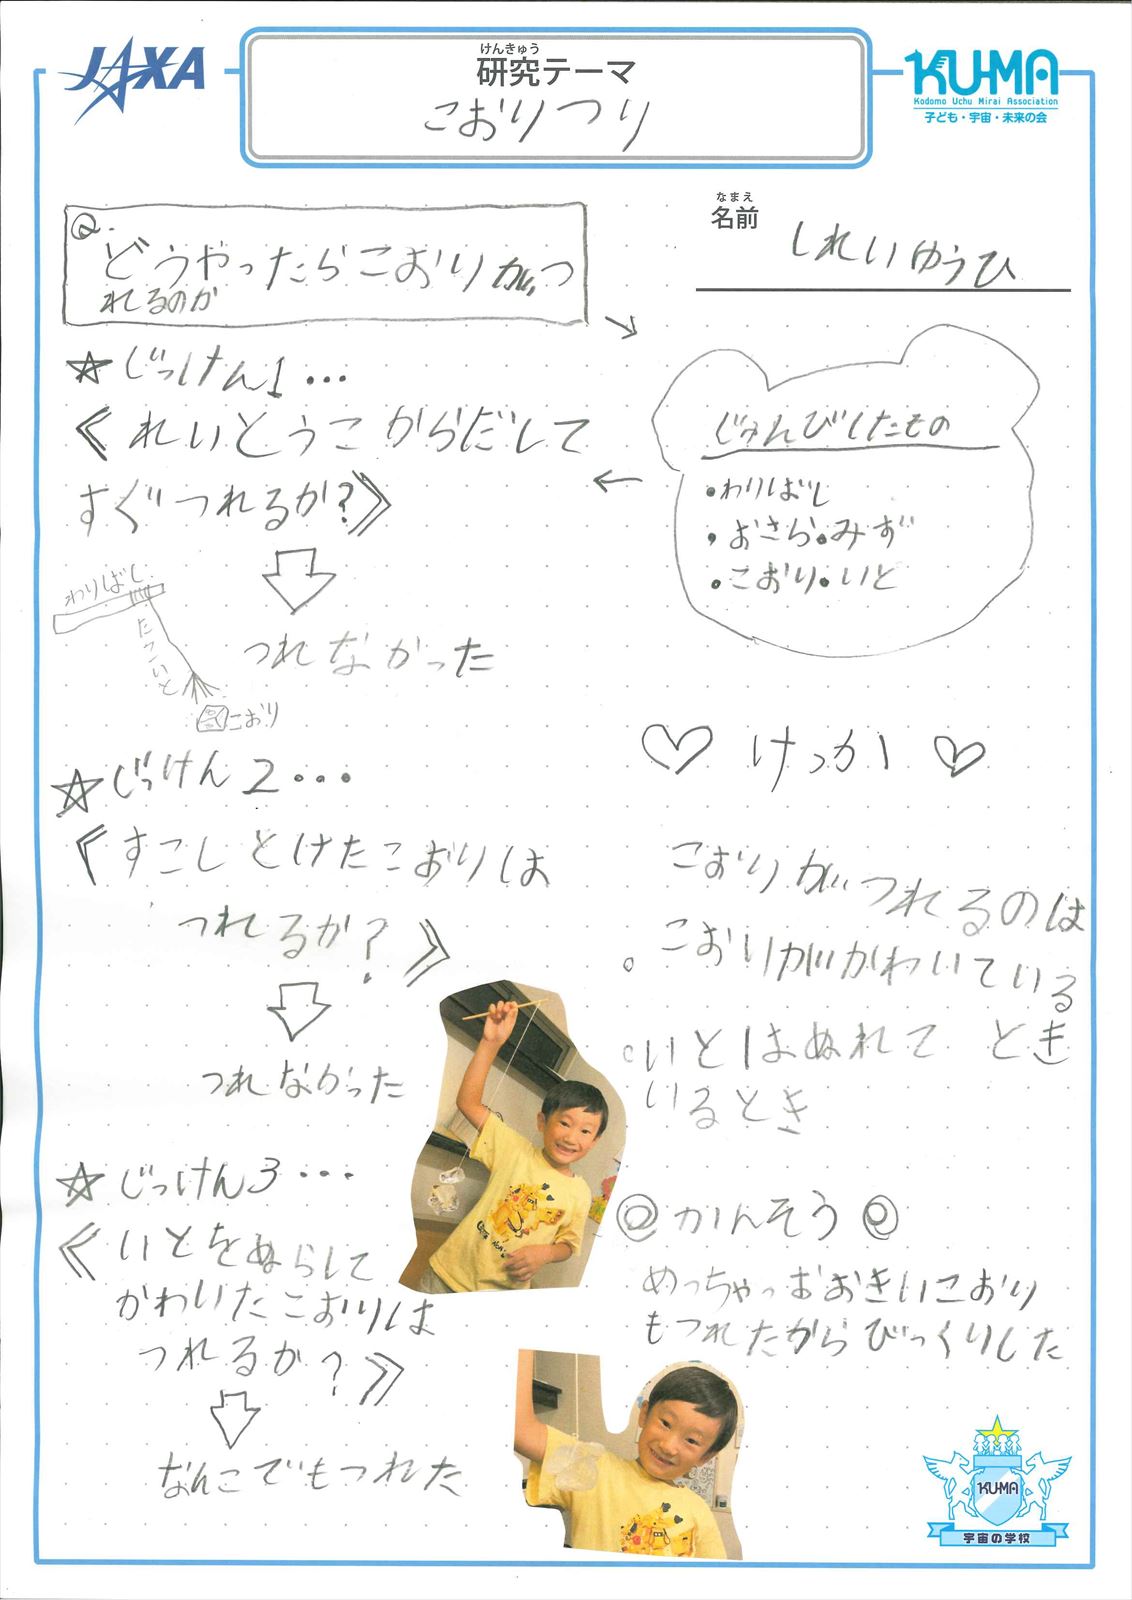 JAXA
けんきゅう
研究テーマ
こおりつり
KU-MA
Kodomo Uchu Mirai Association
子ども・宇宙・未来の会
なまえ
名前
しれいゆうひ
Q.
どうやったらこおりがつ
れるのか
☆じっけん1…
《れいとうこからだして
すぐつれるか?》
つれなかった
わりばし
たこいと
こおり
じゅんびしたもの
・わりばし
・おさら・みず
・こおり・いと
☆じっけん2…
《すこしとけたこおりは
つれるか?》
つれなかった
☆じっけん3…
《いとをぬらして
かわいたこおりは
つれるか?》
なんこでもつれた
♡けっか♡
こおりがつれるのは
。こおりがかわいている
とき
。いとはぬれて
いるとき
@かんそう@
めっちゃっおおきいこおり
もつれたからびっくりした
KU-MA
宇宙の学校